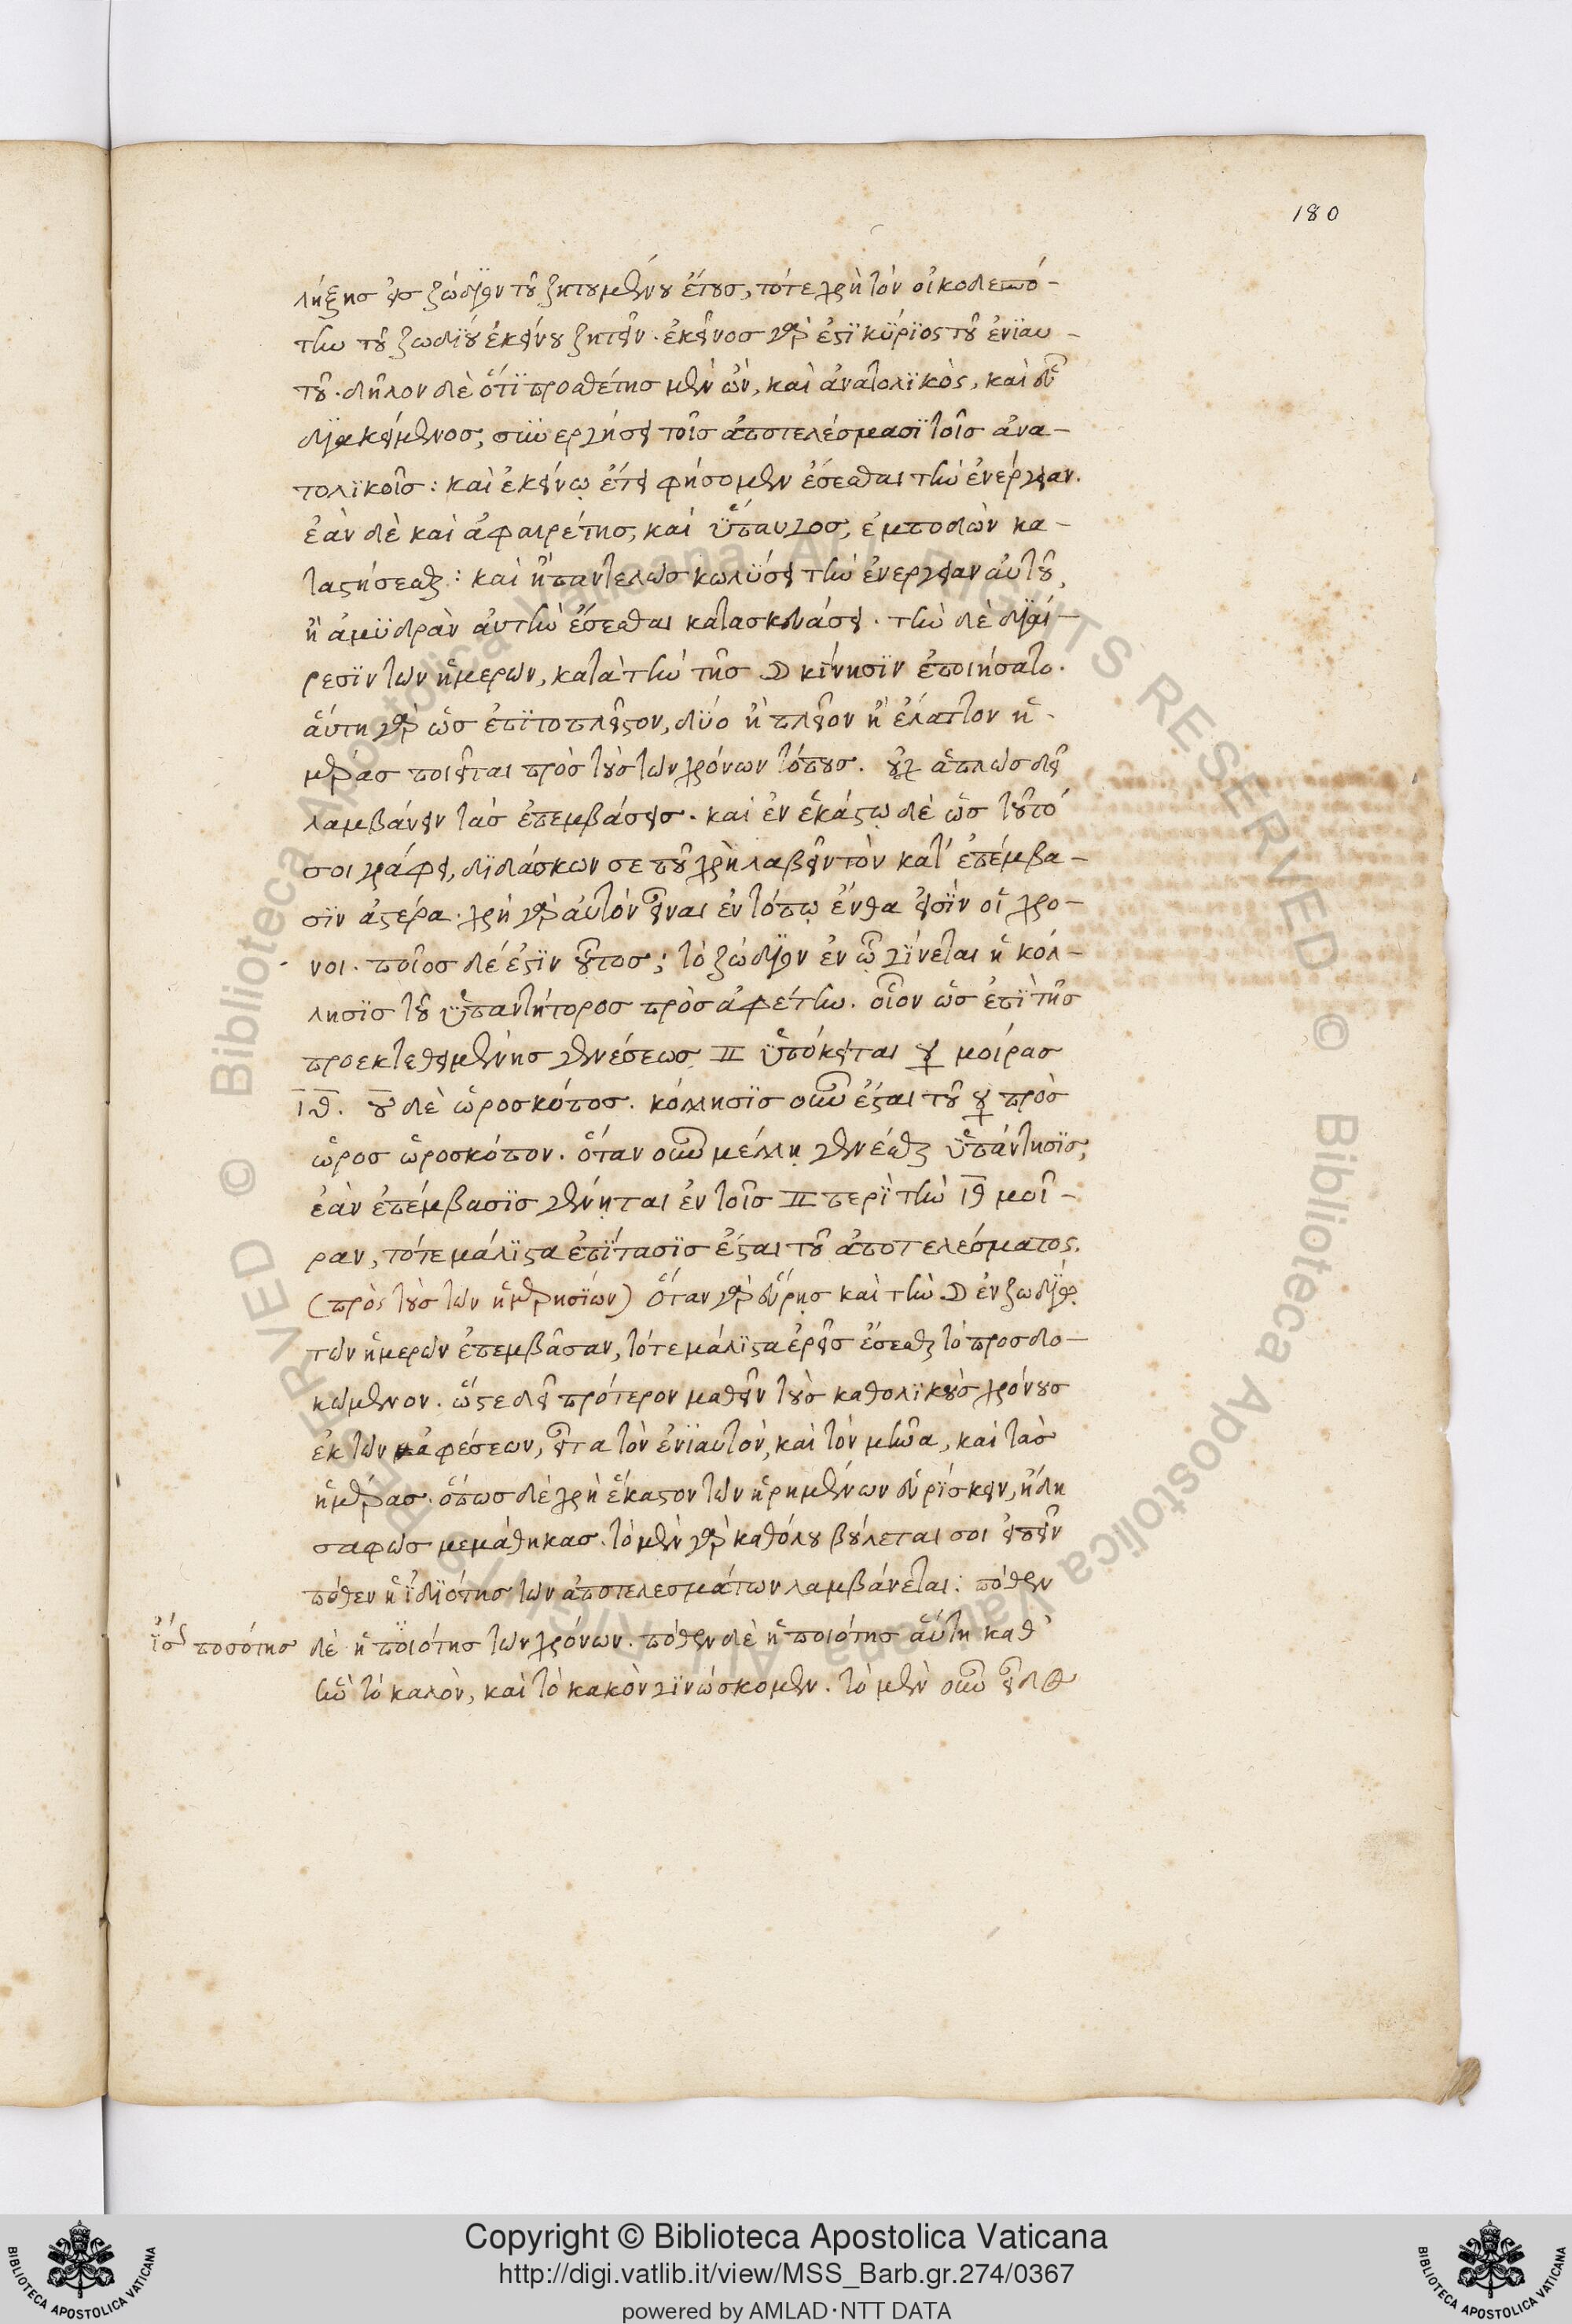 180
λήξης εἰς ζώδιον τοῦ ζητουμένου ἔτους, τότε χρὴ τὸν οἰκοδεσπό-
την τοῦ ζωδίου ἐκείνου ζητεῖν. ἐκεῖνος γάρ ἐστι κύριος τοῦ ἐνιαυ-
τοῦ. δῆλον δὲ ὅτι προσθέτης μὲν ὢν, καὶ ἀνατολικὸς, καὶ εὖ
διακείμενος, συνεργήσει τοῖς ἀποτελέσμασι τοῖς ἀνα-
τολικοῖς: καὶ ἐκείνῳ ἔτει φήσομεν ἔσεσθαι τὴν ἐνέργειαν.
ἐὰν δὲ καὶ ἀφαιρέτης, καὶ ὕπαυγος, ἐμποδὼν κα-
ταστήσεσθαι: καὶ ἢ παντελῶς κωλύσει τὴν ἐνέργειαν αὐτοῦ,
ἢ ἀμυδρὰν αὐτὴν ἔσεσθαι κατασκευάσει. τὴν δὲ διαί-
ρεσιν τῶν ἡμερῶν, κατὰ τὴν τῆς ☽ κίνησιν ἐποιήσατο.
αὕτη γὰρ ὡς ἐπὶ τὸ πλεῖστον, δύο ἢ πλεῖον ἢ ἔλαττον ἡ-
μέρας ποιεῖται πρὸς τοὺς τῶν χρόνων τόπους. οὐχ ἁπλῶς δεῖ
λαμβάνειν τὰς ἐπεμβάσεις. καὶ ἐν ἑκάστῳ δὲ ὡς τοῦτό
σοι γράφει, διδάσκων σε ποῦ χρὴ λαβεῖν τὸν κατ' ἐπέμβα-
σιν ἀστέρα. χρὴ γὰρ αὐτὸν εἶναι ἐν τόπῳ ἔνθα εἰσὶν οἱ χρό-
νοι. ποῖος δέ ἐστιν οὗτος; τὸ ζώδιον ἐν ᾧ γίνεται ἡ κόλ-
λησις τοῦ ὑπαντήτορος πρὸς ἀφέτην. οἷον ὡς ἐπὶ τῆς
προεκτεθειμένης γενέσεως ♊ ὑπόκειται ☿ μοίρας
ιθ. ♉ δὲ ὡροσκόπος. κόλλησις οὖν ἔσται τοῦ ☿ πρὸς
ὧρος ὡροσκόπον. ὅταν οὖν μέλλῃ γενέσθαι ὑπάντησις,
ἐὰν ἐπέμβασις γένηται ἐν τοῖς ♊ περὶ τὴν ιθ μοῖ-
ραν, τότε μάλιστα ἐπίτασις ἔσται τοῦ ἀποτελέσματος.
(πρὸς τοὺς τῶν ἡμερησίων) ὅταν γὰρ εὕρῃς καὶ τὴν ☽ ἐν ζωδίῳ
τῶν ἡμερῶν ἐπεμβᾶσαν, τότε μάλιστα ἐρεῖς ἔσεσθαι τὸ προσδο-
κώμενον. ὥστε δεῖ πρότερον μαθεῖν τοὺς καθολικοὺς χρόνους
ἐκ τῶν ἀφέσεων, εἶτα τὸν ἐνιαυτόν, καὶ τὸν μῆνα, καὶ τὰς
ἡμέρας. ὅπως δὲ χρὴ ἕκαστον τῶν εἰρημένων εὑρίσκειν, ἤδη
σαφῶς μεμάθηκας. τὸ μὲν γὰρ καθόλου βούλεταί σοι εἰπεῖν
πόθεν ἡ ἰδιότης τῶν ἀποτελεσμάτων λαμβάνεται: πόθεν
ἴσ ποσότης δὲ ἡ ποιότης τῶν χρόνων. πόθεν δὲ ἡ ποιότης αὕτη καθ'
ἣν τὸ καλὸν, καὶ τὸ κακὸν γινώσκομεν. τὸ μὲν οὖν εἶδος
Copyright © Biblioteca Apostolica Vaticana
http://digi.vatlib.it/view/MSS_Barb.gr.274/0367
powered by AMLAD·NTT DATA